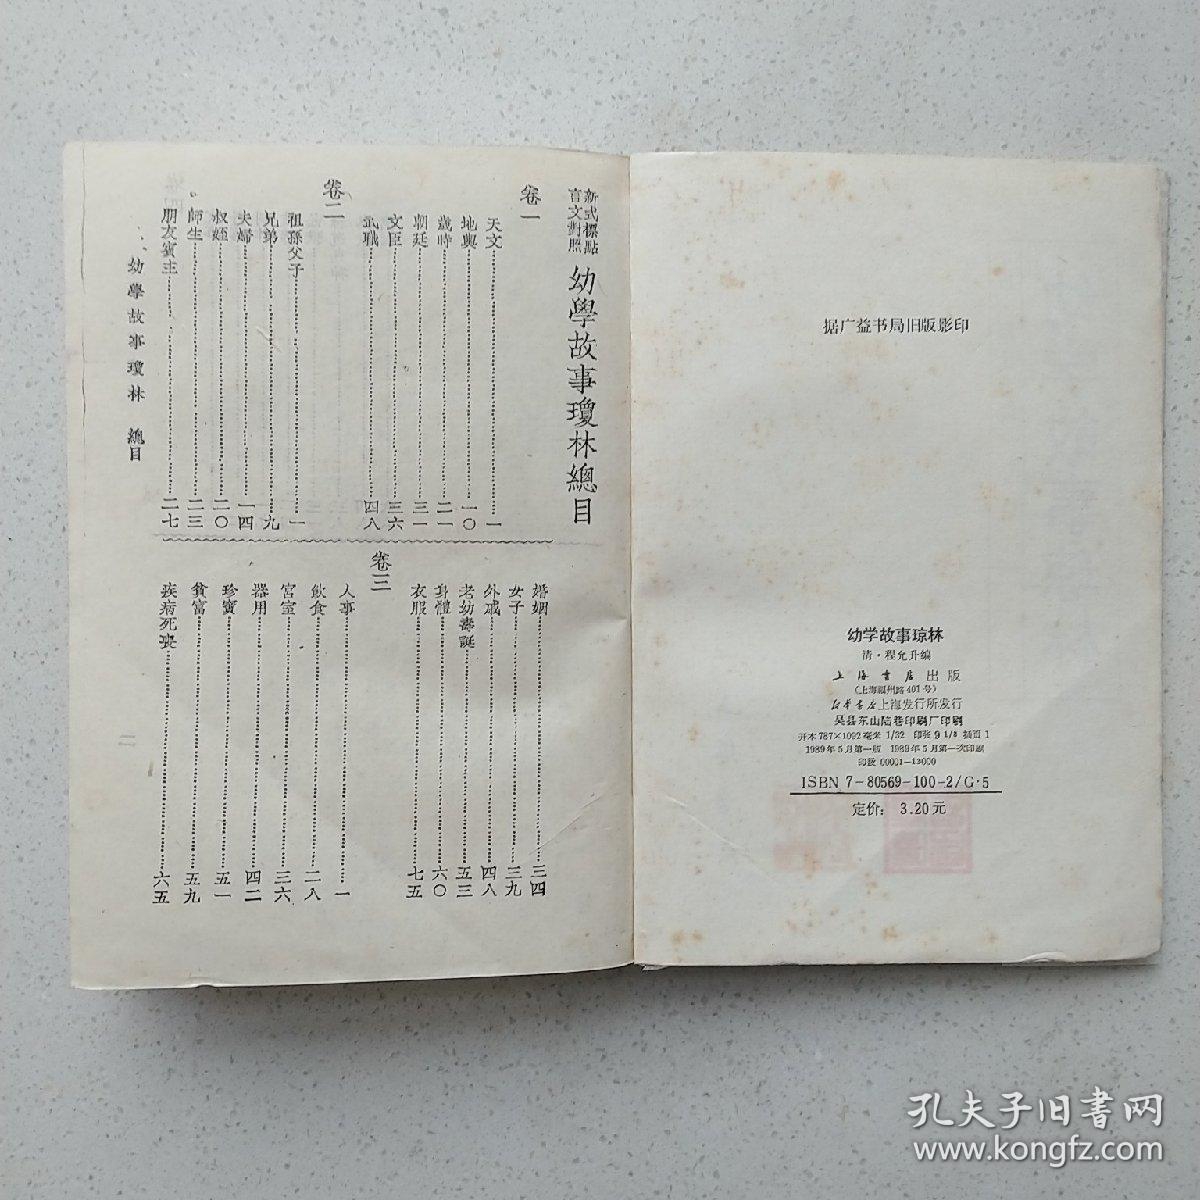 據广益书局旧版影印
幼学故事琼林
清·程允升编
上海书店出版
(上海福州路401号)
新华书店上海发行所发行
吴县东山陆巷印刷厂印刷
开本787×1092毫米 1/32 印张9 1/8 插页1
1989年5月第一版 1989年5月第一次印刷
印数00001-13000
ISBN 7-80569-100-2/G·5
定价：3.20元
新式標點
言文對照
幼學故事瓊林總目
卷一
天文 一
地輿 一〇
歲時 二一
朝廷 三一
文臣 三六
武職 四八
卷二
祖孫父子 一
兄弟 九
夫婦 一四
叔姪 二〇
師生 二三
朋友賓主 二七
婚姻 三四
女子 三九
外戚 四八
老幼壽誕 五三
身體 六〇
衣服 七五
卷三
人事 一
飲食 二八
宮室 三六
器用 四二
珍寶 五一
貧富 五九
疾病死喪 六五
幼學故事瓊林 總目
二
孔夫子旧书网
www.kongfz.com